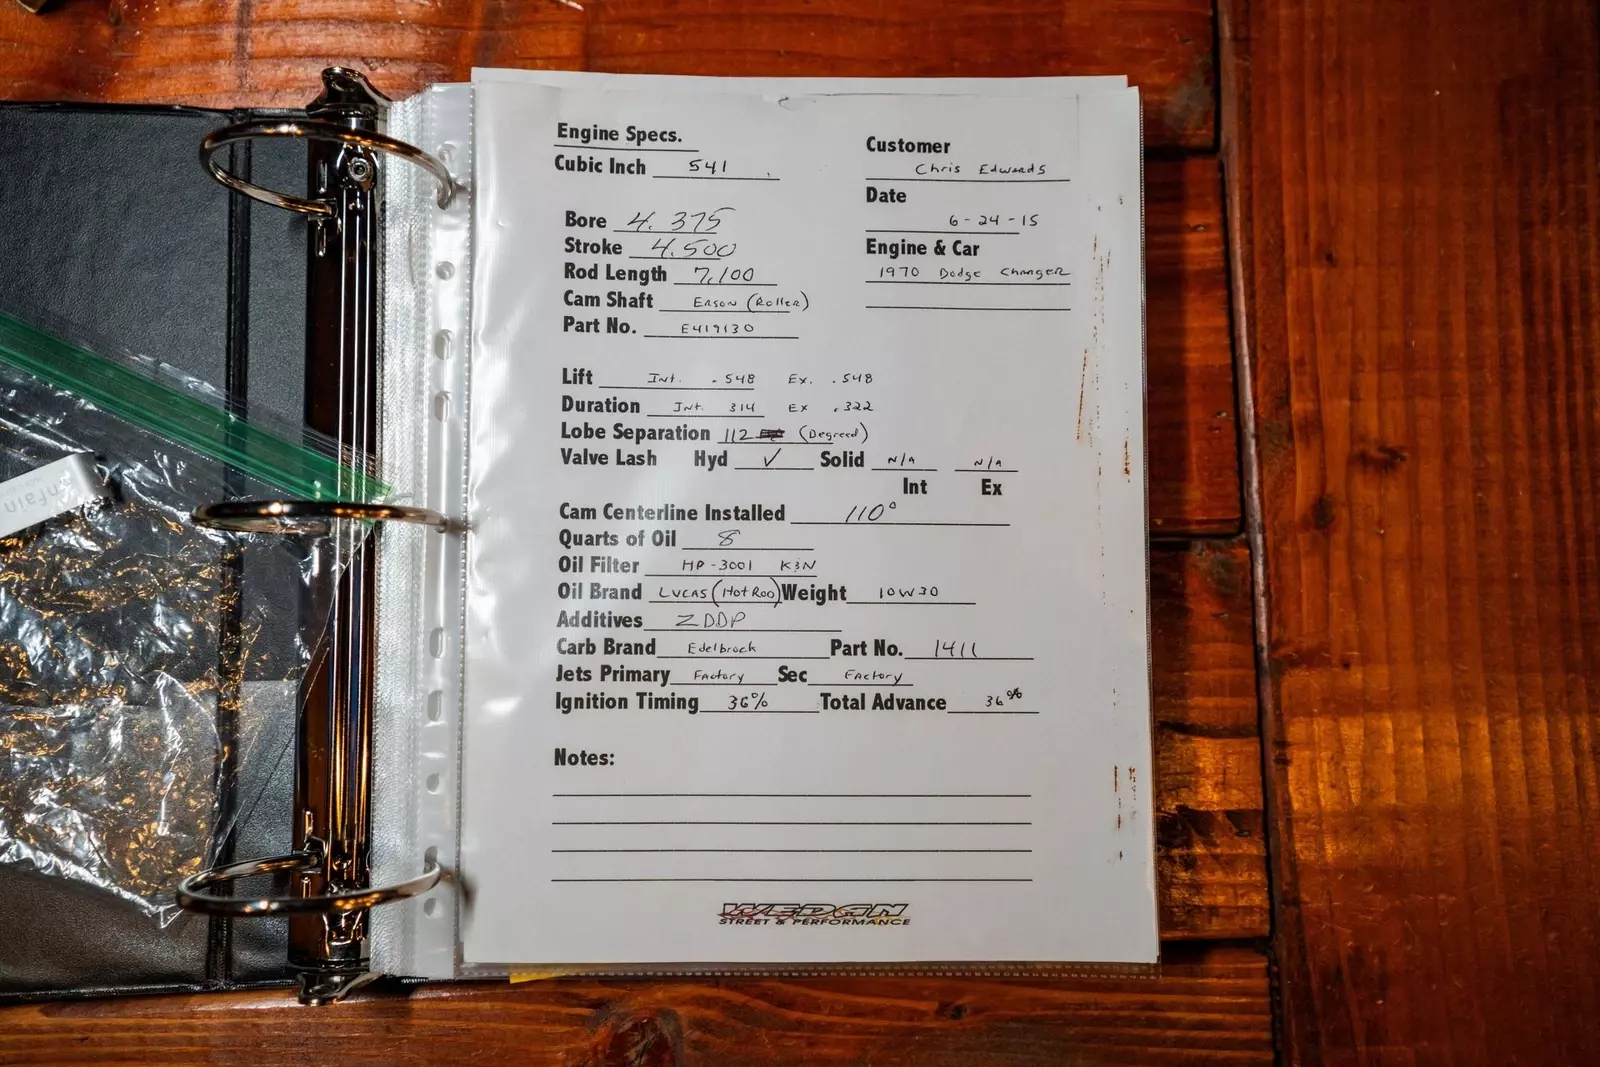 Engine Specs.
Cubic Inch 541
Customer
Chris Edwards
Date
6-24-15
Engine & Car
1970 Dodge Charger
Bore 4.375
Stroke 4.500
Rod Length 7.100
Cam Shaft Erson (Roller)
Part No. E419130
Lift Int. .548 Ex. .548
Duration Int. 314 Ex .322
Lobe Separation 112 (Degreed)
Valve Lash Hyd ✓ Solid N/A N/A
Int Ex
Cam Centerline Installed 110°
Quarts of Oil 8
Oil Filter HP-3001 K&N
Oil Brand LUCAS (Hot Rod) Weight 10W30
Additives ZDDP
Carb Brand Edelbrock Part No. 1411
Jets Primary Factory Sec Factory
Ignition Timing 36% Total Advance 36%
Notes:
WEDGN
STREET & PERFORMANCE